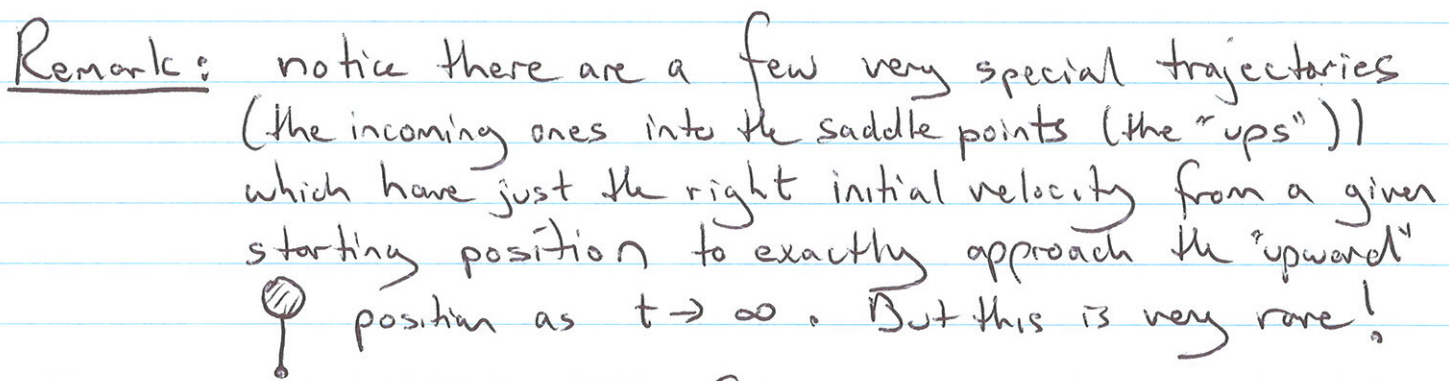 Remark: notice there are a few very special trajectories
(the incoming ones into the saddle points (the "ups"))
which have just the right initial velocity from a given
starting position to exactly approach the "upward"
position as t → ∞. But this is very rare!